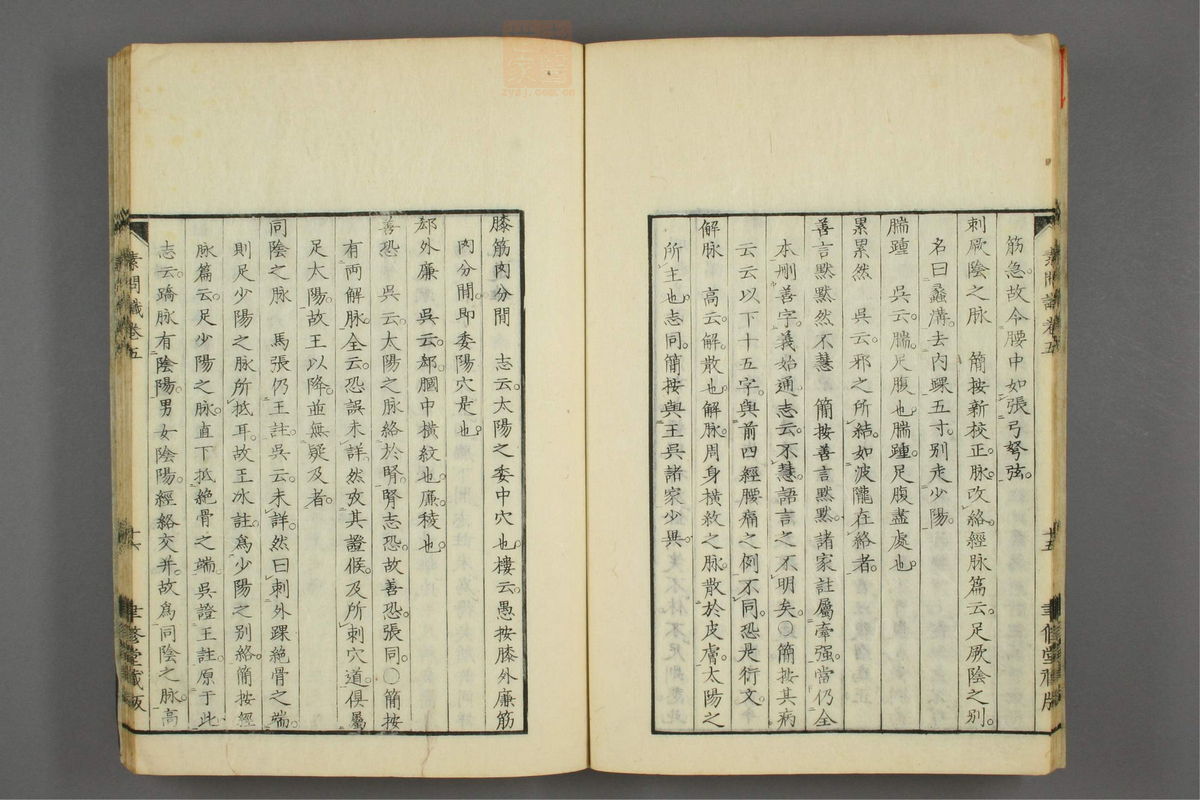 筋急。故令腰中如張弓弩弦。
刺厥陰之脉　簡按新校正。脉。改絡。經脉篇云。足厥陰之別。
名曰蠡溝。去內踝五寸。別走少陽。
腨踵　吳云。腨。尺腹也。腨踵。足腹盡處也。
累累然　吳云。邪之所結。如波隴在絡者。
善言默默然不慧　簡按善言默默。諸家註屬牽强。當仍全
本刪善字。義始通。志云。不慧。語言之不明矣。〇簡按其病
云云以下十五字。與前四經腰痛之例不同。恐是衍文。
解脉　高云。解。散也。解脉。周身橫紋之脉。散於皮膚。太陽之
所主也。志同。簡按與王吳諸家少異。
素問識卷五
十五
膝筋肉分閒　志云。太陽之委中穴也。樓云。愚按膝外廉筋
肉分閒。卽委陽穴是也。
郄外廉　吳云。郄。膕中橫紋也。廉。稜也。
善恐　吳云。太陽之脉絡於腎。腎志恐。故善恐。張同〇簡按
有兩解脉。全云。恐誤。未詳。然攷其證候。及所刺穴道。俱屬
足太陽。故王以降。並無疑及者。
同陰之脉　馬張仍王註。吳云。未詳。然曰刺外踝絕骨之端。
則足少陽之脉所抵耳。故王冰註。爲少陽之別絡。簡按經
脉篇云。足少陽之脉。直下抵絕骨之端。吳證王註。原于此
志云。蹻脉有陰陽。男女陰陽。經絡交并。故爲同陰之脉。高
素問識卷五
十六